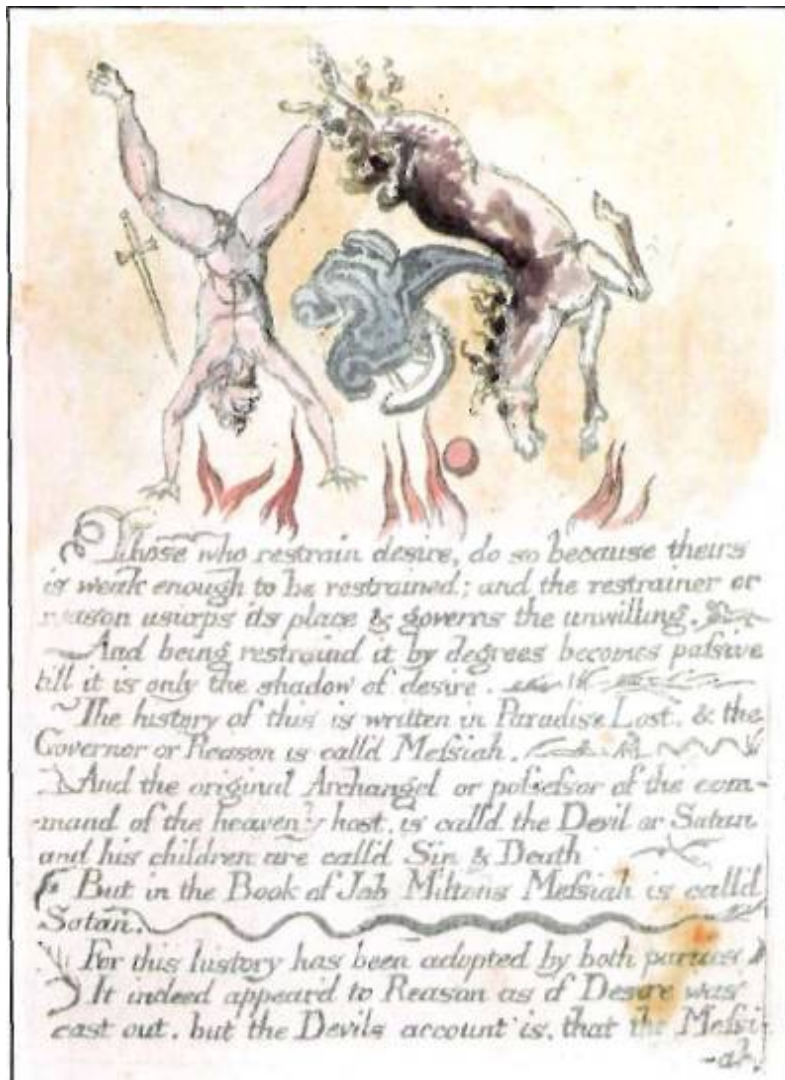 Those who restrain desire, do so because theirs
is weak enough to be restrained; and the restrainer or
reason usurps its place & governs the unwilling.
And being restraind it by degrees becomes paſsive
till it is only the shadow of desire.
The history of this is written in Paradise Lost. & the
Governor or Reason is call'd Meſsiah.
And the original Archangel or poſseſsor of the com-
-mand of the heavenly host, is calld the Devil or Satan
and his children are call'd Sin & Death
But in the Book of Job Miltons Meſsiah is call'd
Satan.
For this history has been adopted by both parties
It indeed appear'd to Reason as if Desire was
cast out. but the Devils account is, that the Meſsi-
-ah